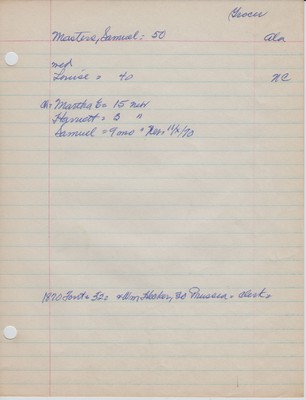 Grocer
Masters, Samuel = 50 Ala
Louise = 40 NC
Ch: Martha E = 15
Harriett = 3 "
Samuel = 9 mo "
1870 Fort = 52 = Wm Hecker, 30 Prussia = clerk =